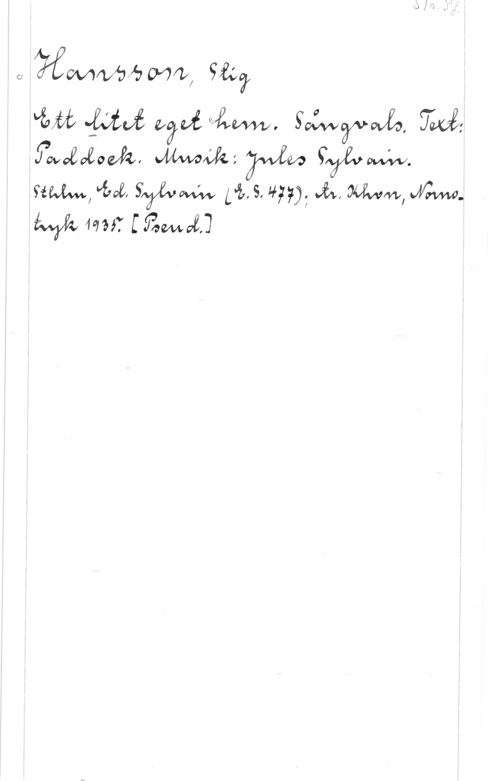 Hansson, Stig
Ett litet eget hem. Sångvals. Text:
Paddock. Musik: Jules Sylvain.
Sthlm, Ed. Sylvain (E. S. 477); tr. Khvn, Nomo-
tryk 1935. [Pseud.]